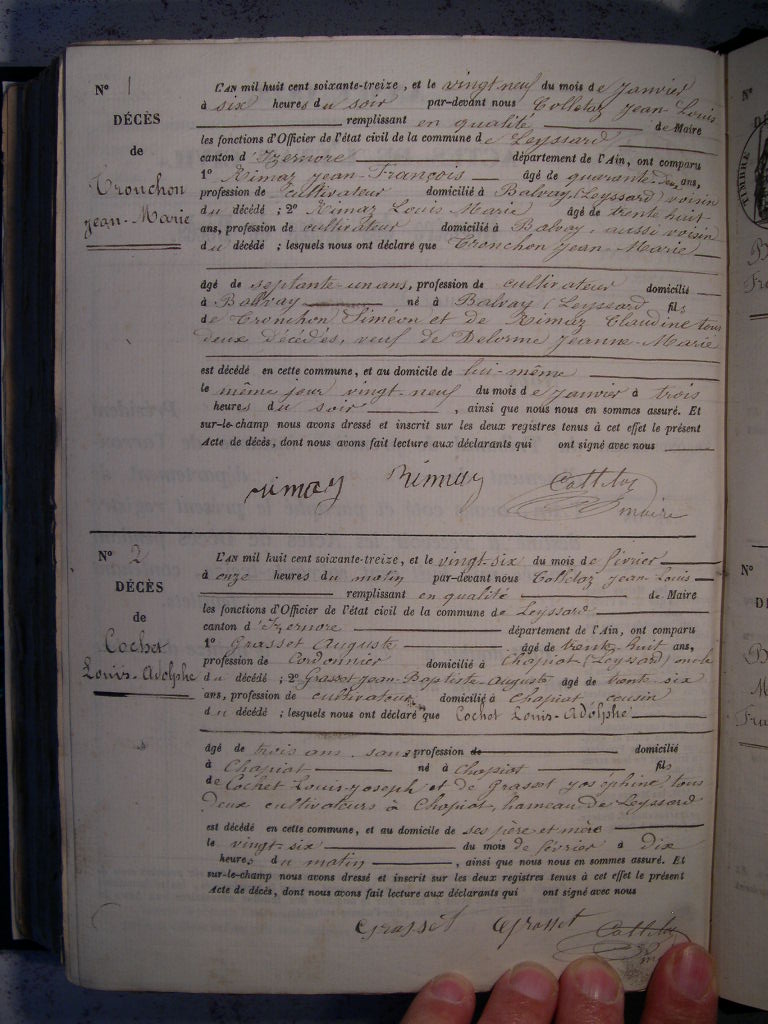 N° 1
DÉCÈS
de
Tronchon
Jean-Marie
L'AN mil huit cent soixante-treize, et le vingt neuf du mois de Janvier
à six heures du soir par-devant nous Colletaz Jean-Louis
remplissant en qualité de Maire
les fonctions d'Officier de l'état civil de la commune de Leyssard
canton d'Izernore département de l'Ain, ont comparu
1° Rimaz Jean-François âgé de quarante-deux ans,
profession de cultivateur domicilié à Balvay (Leyssard) voisin
du décédé ; 2° Rimaz Louis Marie âgé de trente huit
ans, profession de cultivateur domicilié à Balvay, aussi voisin
du décédé ; lesquels nous ont déclaré que Tronchon Jean-Marie
âgé de septante-un ans, profession de cultivateur domicilié
à Balvay né à Balvay (Leyssard fils
de Tronchon Siméon et de Rimaz Claudine tous
deux décédés, veuf de Delorme Jeanne-Marie
est décédé en cette commune, et au domicile de lui-même
le même jour vingt-neuf du mois de Janvier à trois
heures du soir, ainsi que nous nous en sommes assuré. Et
sur-le-champ nous avons dressé et inscrit sur les deux registres tenus à cet effet le présent
Acte de décès, dont nous avons fait lecture aux déclarants qui ont signé avec nous
rimaz Rimaz
maire
N° 2
DÉCÈS
de
Cochet
Louis-Adolphe
L'AN mil huit cent soixante-treize, et le vingt-six du mois de février
à onze heures du matin par-devant nous Colletaz Jean-Louis
remplissant en qualité de Maire
les fonctions d'Officier de l'état civil de la commune de Leyssard
canton d'Izernore département de l'Ain, ont comparu
1° Grasset Auguste âgé de trente-huit ans,
profession de Cordonnier domicilié à Chapiat (Leyssard) oncle
du décédé ; 2° Grasset Jean-Baptiste-Auguste âgé de trente-six
ans, profession de cultivateur domicilié à Chapiat cousin
du décédé ; lesquels nous ont déclaré que Cochet Louis-Adolphe
âgé de trois ans, sans profession de domicilié
à Chapiat né à Chapiat fils
de Cochet Louis-Joseph et de Grasset Joséphine, tous
deux cultivateurs à Chapiat, hameau de Leyssard
est décédé en cette commune, et au domicile de ses père et mère
le vingt-six du mois de février à dix
heures du matin, ainsi que nous nous en sommes assuré. Et
sur-le-champ nous avons dressé et inscrit sur les deux registres tenus à cet effet le présent
Acte de décès, dont nous avons fait lecture aux déclarants qui ont signé avec nous
Grasset Grasset
N°
TIMBRE
N°